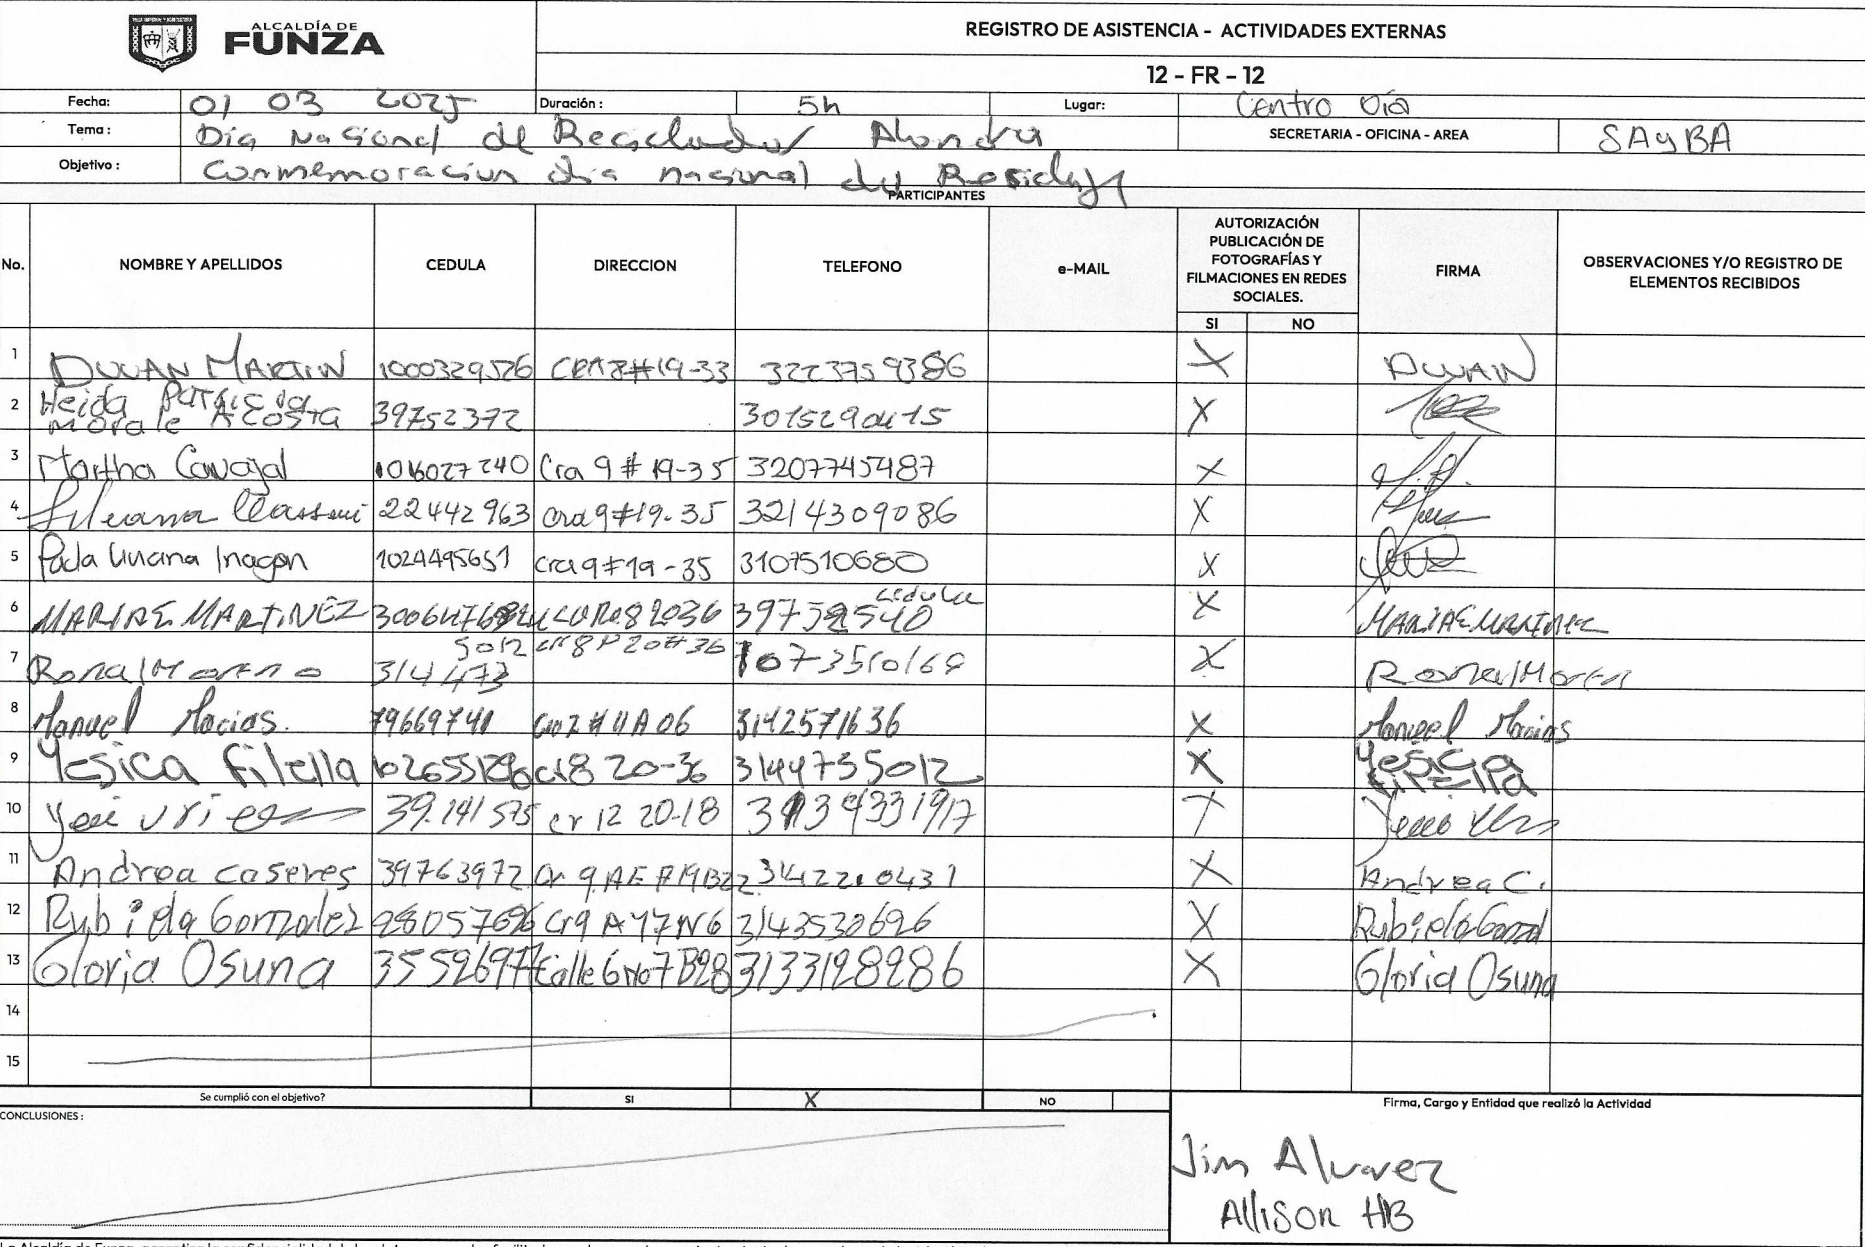 ALCALDÍA DE
FUNZA
REGISTRO DE ASISTENCIA - ACTIVIDADES EXTERNAS
12 - FR - 12
Fecha: 01 03 2025 Duración : 5h Lugar: Centro Día
Tema : Dia Nacional de Reciclador Alondra SECRETARIA - OFICINA - AREA SAyBA
Objetivo : Conmemoracion dia nacional del
PARTICIPANTES
No. NOMBRE Y APELLIDOS CEDULA DIRECCION TELEFONO e-MAIL AUTORIZACIÓN PUBLICACIÓN DE FOTOGRAFÍAS Y FILMACIONES EN REDES SOCIALES. FIRMA OBSERVACIONES Y/O REGISTRO DE ELEMENTOS RECIBIDOS
SI NO
1 DUVAN MARTIN 1000329526 CRA 8#19-33 3223759386 X DUVAN
2 Heida Patricia Morale Acosta 39752372 3015290415 X
3 Martha Cavajal 1016027240 Cra 9 # 19-35 3207745487 X
4 22442963 cra 9#19-35 3214309086 X
5 1024495651 cra 9#19-35 3107510680 X
6 MARIAE MARTINEZ 39752540 cedula X MARIAE MARTINEZ
7 Ronal Moreno 314 473 5012 cr 8 P 20#36 1073510168 X Ronal Moren
8 Manuel Macias. 79669741 Cra 2 # 11A 06 3142571636 X Manuel Macias
9 Yesica Filella cr8 20-36 3144735012 X Yesica Filella
10 39.141575 cr 12 20-18 X
11 Andrea caseres 39763972 3142210431 X Andrea C.
12 Rubiela Gomzalez 3143530696 X Rubiela Gonzal
13 Gloria Osuna Calle 6 No 7 B28 3133128286 X Gloria Osuna
14
15
Se cumplió con el objetivo? SI X NO
CONCLUSIONES :
Firma, Cargo y Entidad que realizó la Actividad
Jim Alvarez
Allison HB